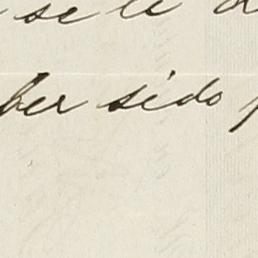 se le
ber sido